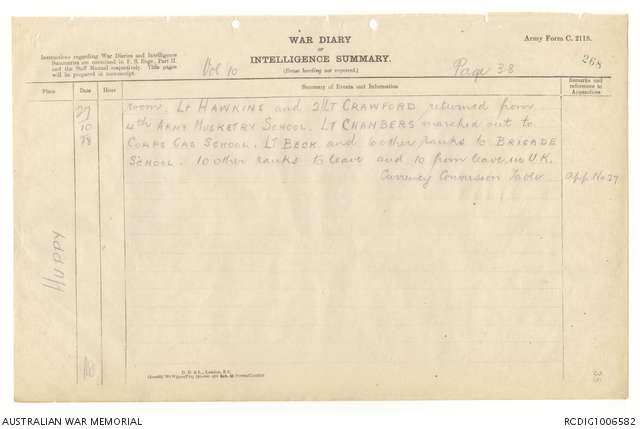 WAR DIARY
OF
INTELLIGENCE SUMMARY.
(Erase heading not required.)
Army Form C. 2118.
Instructions regarding War Diaries and Intelligence
Summaries are contained in F. S. Regs., Part II.
and the Staff Manual respectively. Title pages
will be prepared in manuscript.
Vol 10
Page 38
268
Place
Date
Hour
Summary of Events and Information
Remarks and
references to
Appendices
27
10
18
room. Lt HAWKINS and 2/Lt CRAWFORD returned from
4th ARMY MUSKETRY SCHOOL. Lt CHAMBERS marched out to
CORPS GAS SCHOOL. Lt BECK and 6 other ranks to BRIGADE
SCHOOL. 10 other ranks to leave and 10 from leave in U.K.
Currency Conversion Table
app. No 27
HUPPY
D. D. & L., London, E.C.
AUSTRALIAN WAR MEMORIAL
RCDIG1006582